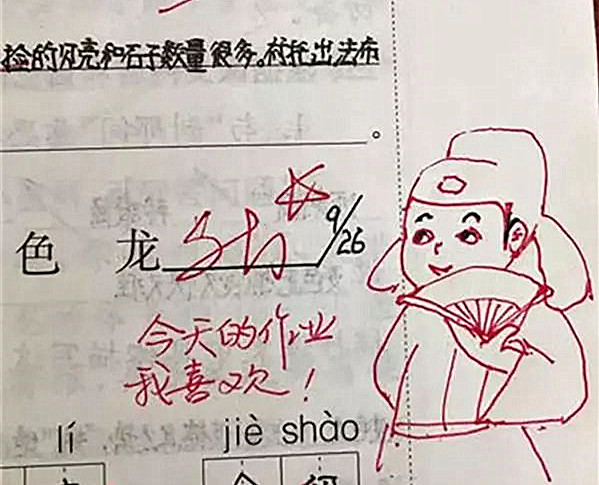 捡的贝壳和石子数量很多。衬托出法布
。
色 龙 9/26
今天的作业
我喜欢！
lí jiè shào